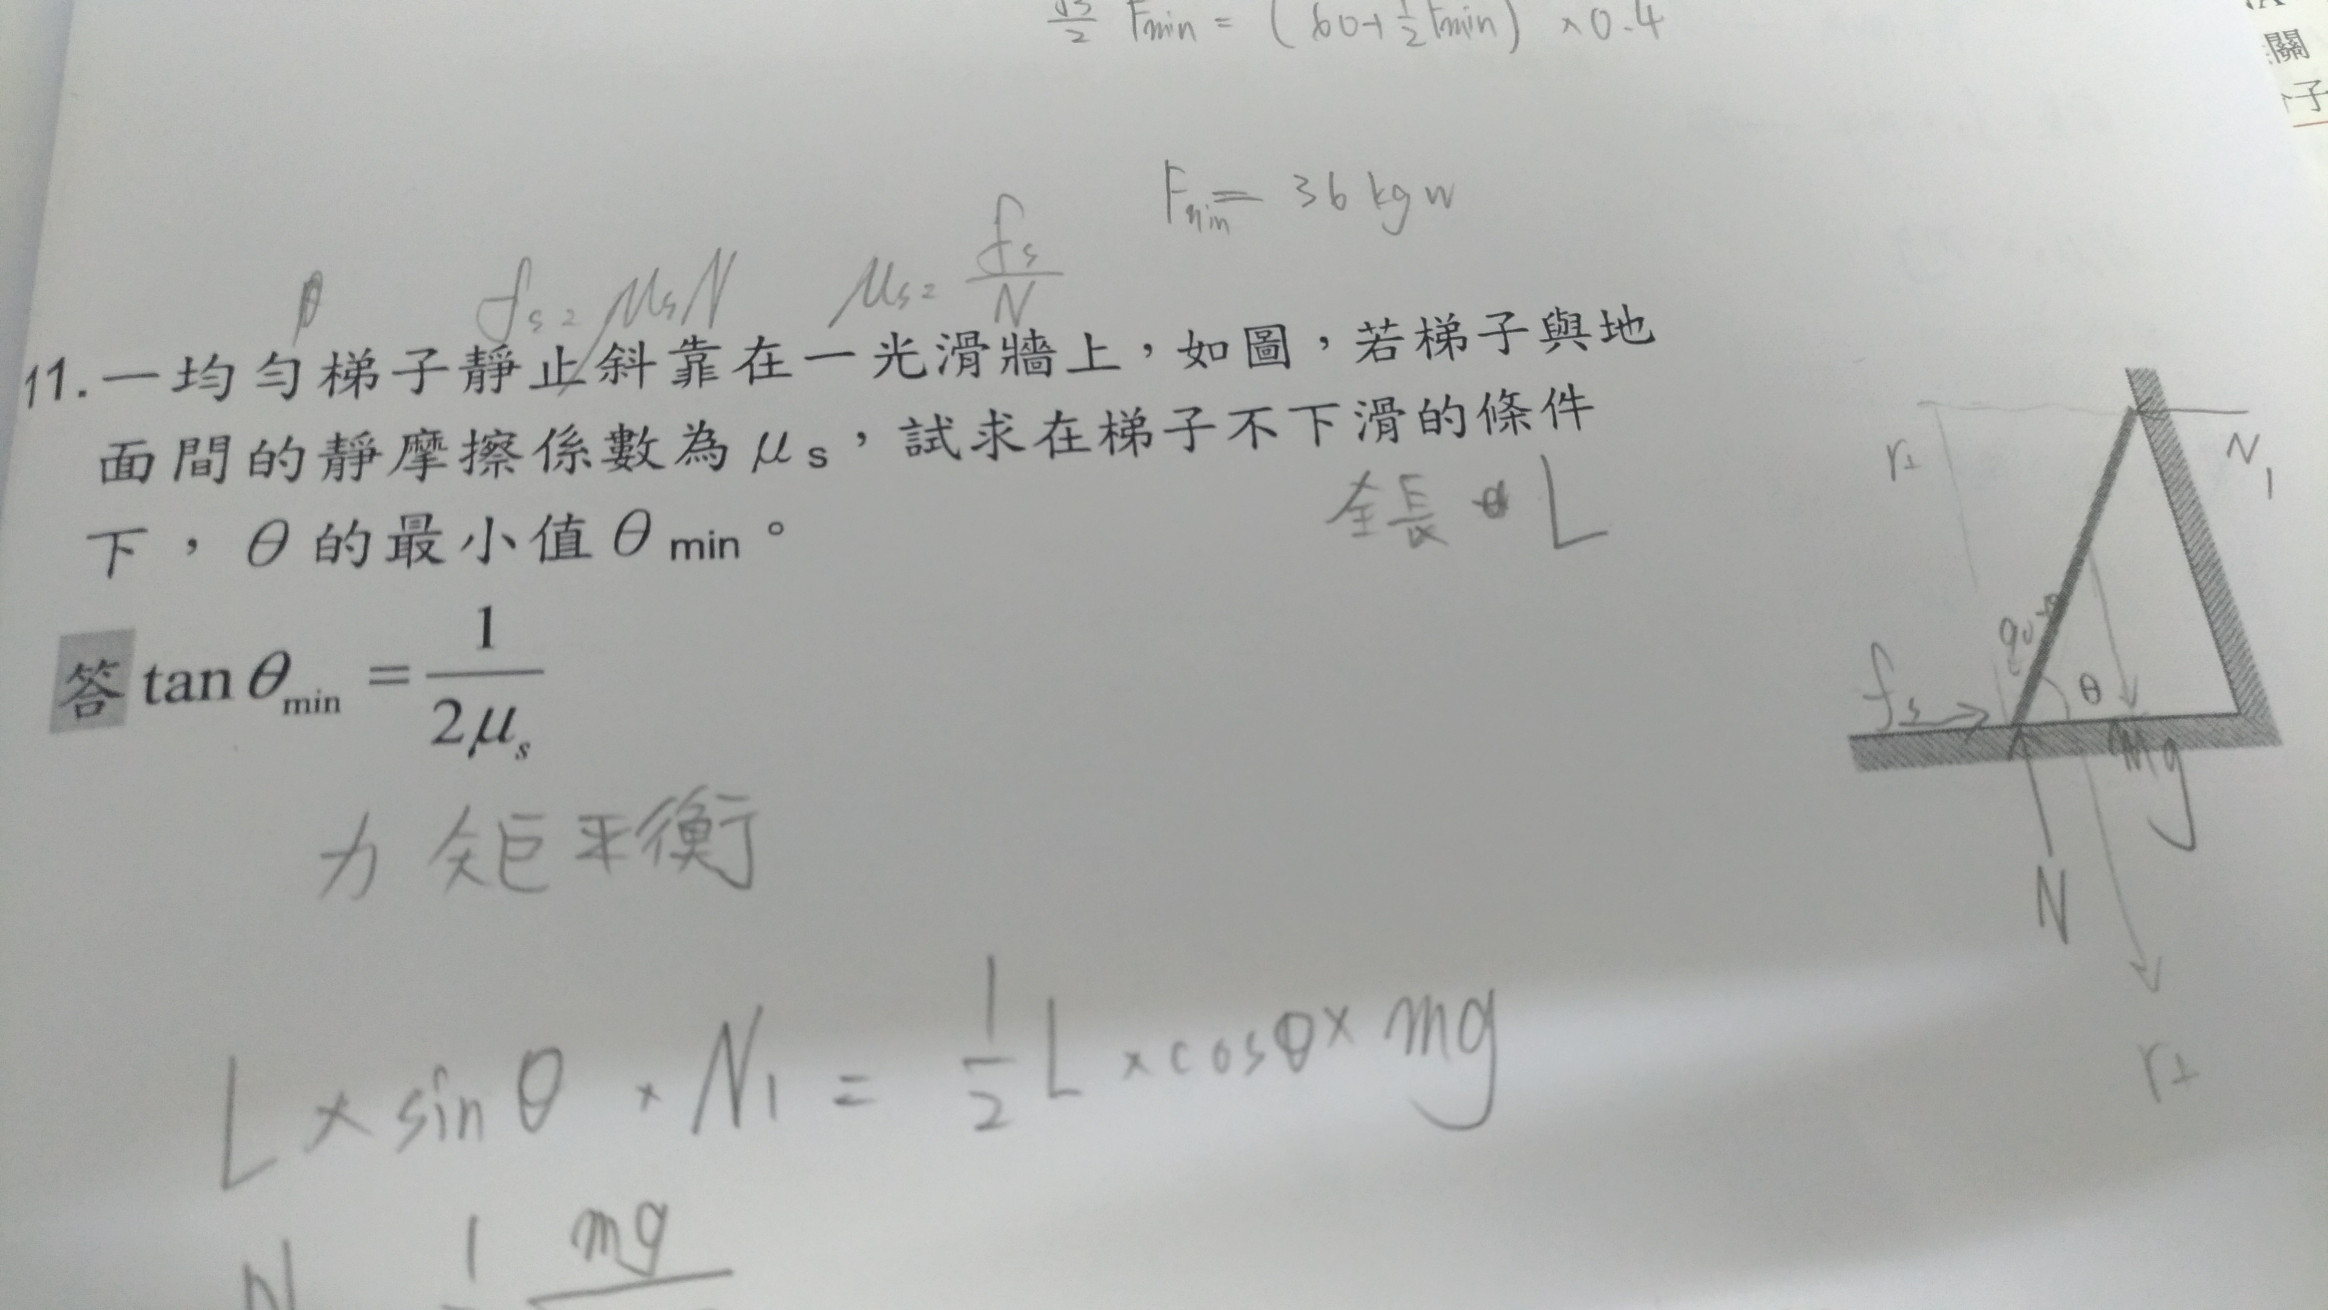 √3/2 Fmin = (60+½Fmin) ×0.4
關
子
Fmin = 36 kgw
θ fs = μsN μs = fs/N
11.一均勻梯子靜止斜靠在一光滑牆上，如圖，若梯子與地
面間的靜摩擦係數為μs，試求在梯子不下滑的條件
下，θ的最小值θmin。
全長 L
答 tanθmin = 1/2μs
r⊥
N1
90
θ
fs
mg
N
r⊥
力矩平衡
L × sinθ × N1 = 1/2 L × cosθ × mg
1 mg